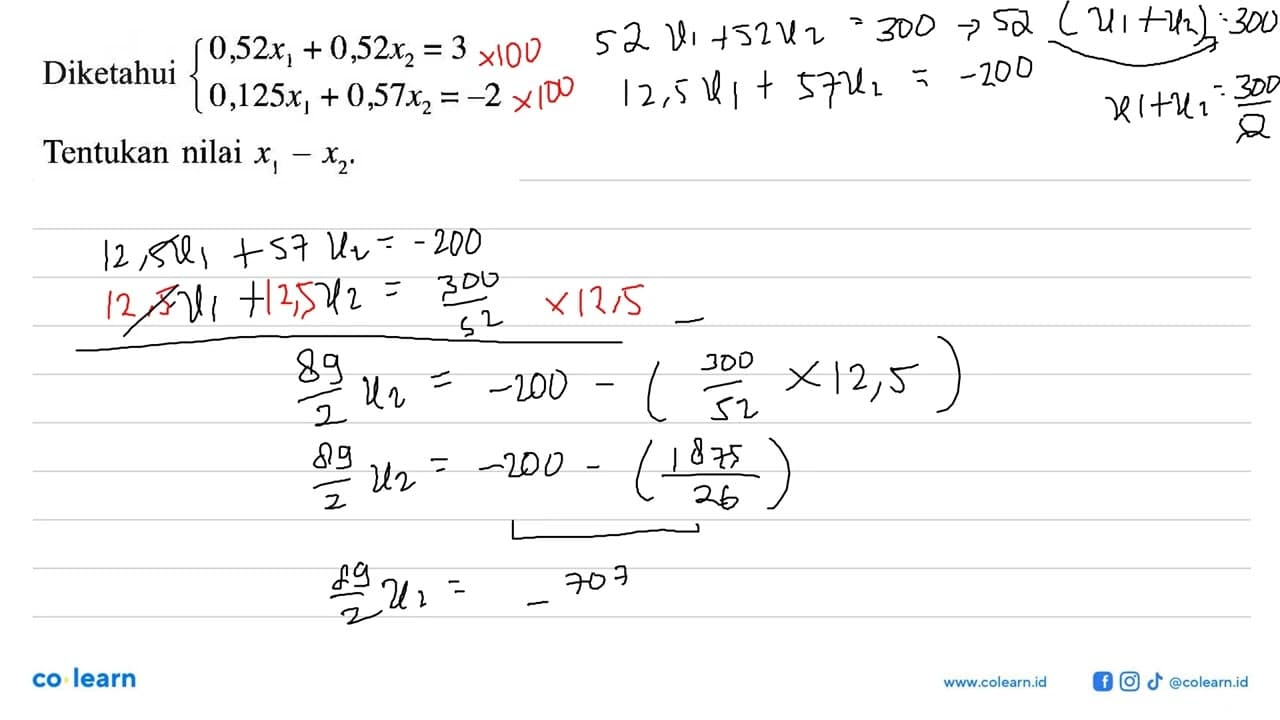 Diketahui { 0,52x₁ + 0,52x₂ = 3 ×100
0,125x₁ + 0,57x₂ = –2 ×100
Tentukan nilai x₁ – x₂.
52 x₁ + 52x₂ = 300 → 52 (x₁ + x₂) = 300
12,5 x₁ + 57x₂ = -200
x₁ + x₂ = 300/52
12,5x₁ + 57 x₂ = -200
12,5x₁ + 12,5x₂ = 300/52 ×12,5 –
89/2 x₂ = -200 - ( 300/52 × 12,5 )
89/2 x₂ = -200 - ( 1875/26 )
89/2 x₂ = - 707
co learn
www.colearn.id
@colearn.id